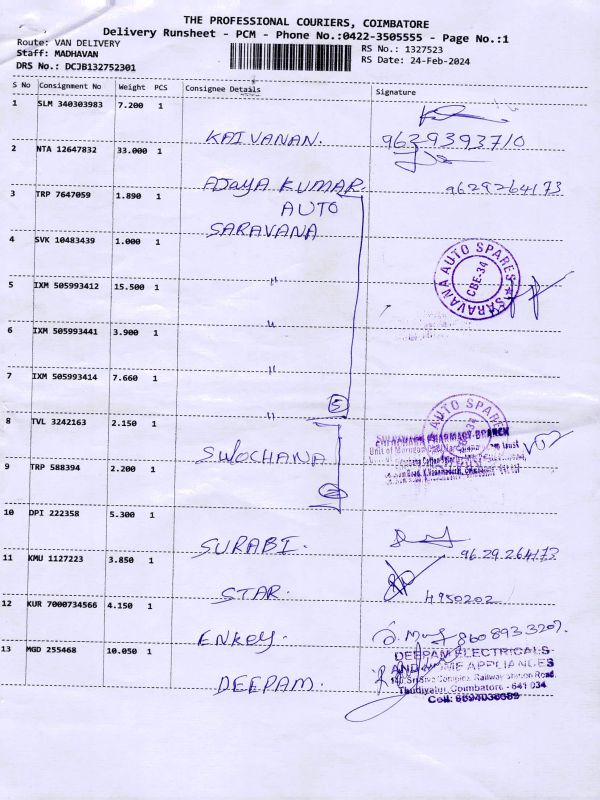 THE PROFESSIONAL COURIERS, COIMBATORE
Delivery Runsheet - PCM - Phone No.:0422-3505555 - Page No.:1
Route: VAN DELIVERY
RS No.: 1327523
Staff: MADHAVAN
RS Date: 24-Feb-2024
DRS No.: DCJB132752301
S No Consignment No Weight PCS Consignee Details Signature
1 SLM 340303983 7.200 1
KAIVANAN. 9629393710
2 NTA 12647832 33.000 1
AJAYA KUMAR. 9629264173
3 TRP 7647059 1.890 1
AUTO
SARAVANA
4 SVK 10483439 1.000 1
SARAVANA AUTO SPARES
CBE-34
5 IXM 505993412 15.500 1
〃
6 IXM 505993441 3.900 1
〃
7 IXM 505993414 7.660 1
〃
5
8 TVL 3242163 2.150 1
AUTO SPARES
SULOCHANA
9 TRP 588394 2.200 1
2
10 DPI 222358 5.300 1
SURABI. 9629264173
11 KMU 1127223 3.850 1
STAR. 4950202
12 KUR 7000734566 4.150 1
ENKEY. 860893 3207.
13 MGD 255468 10.050 1
DEEPAM ELECTRICALS
AND HOME APPLIANCES
DEEPAM.
Railway Station Road,
Thudiyalur, Coimbatore - 641 034
Cell: